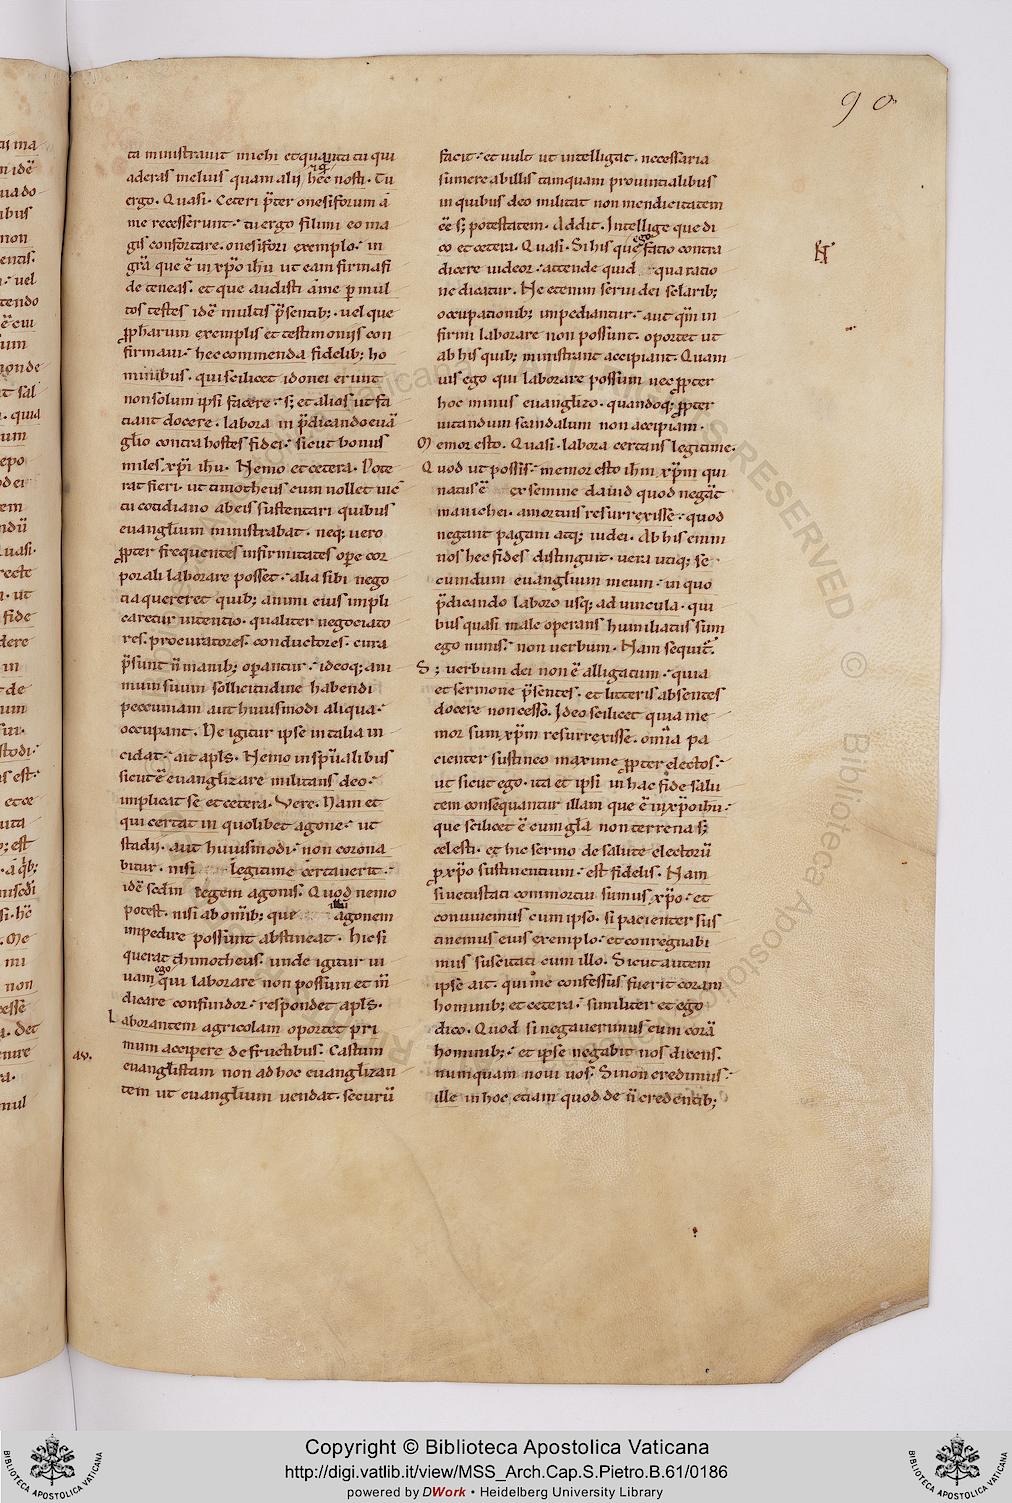 90
ta ministrauit michi et quanta tu qui
aderas melius quam alii hec nosti. Tu
ergo. Quasi. Ceteri p̄ter onesiforum ā
me recesserunt. tu ergo filimi eo ma
gis confortare. onesifori exemplo. in
gr̄a que ē in xp̄o ihu ut eam firmat͛
de teneas. et que audisti a me p mul
tos testes idē multis p̄sentib; uel que
ꝓpharum exemplis et testimoniis con
firmaui. hec commenda fidelib; ho
minibus. qui scilicet idonei erunt
non solum ipsi facere. s; et alios ut fa
ciant docere. labora in p̄dicando euā
glio contra hostes fidei. sicut bonus
miles xp̄i ihu. Nemo et cetera. Pote
rat fieri. ut timotheus eum nollet uic
tu cotidiano ab eis sustentari quibus
euanglium ministrabat. neq; uero
ꝓpter frequentes infirmitates ope cor
porali laborare posset. alia sibi nego
tia quereret quib; animi eius impli
caretur intentio. qualiter negociato
res. procuratores. conductores. cura
p̄sunt n̄ manib; operantur. ideoq; ani
mum suum sollicitudine habendi
peccuniam aut huiusmodi aliqua.
occupant. Ne igitur ipse in talia in
cidat. ait apl̄s. Nemo in sp̄ualibus
sicut ē euanglizare militans deo.
implicat se et cetera. Vere. Nam et
qui certat in quolibet agone. ut
stadii. aut huiusmodi. non corona
bitur. nisi legitime certauerit.
idē scdm legem agonis. Quod nemo
potest. nisi ab om̄ib; que illū agonem
impedire possunt abstineat. Hic si
querat thimotheus. unde igitur ui
uam ego qui laborare non possum et m̄
dicare confundor. respondet apl̄s.
Laborantem agricolam oportet pri
mum accipere de fructibus. Castum
euanglistam non ad hoc euanglizan
tem ut euanglium uendat. securū
facit. et uult ut intelligat. necessaria
sumere ab illis tamquam prouintialibus
in quibus deo militat non mendicitatem
ēe s; potestatem. Addit. Intellige que di
co et cetera. Quasi. Si his que ego facio contra
dicere uideor. attende quid qua ratio
ne dicatur. Ne etenim serui dei selarib;
occupationib; impediantur. aut qm̄ in
firmi laborare non possunt. oportet ut
ab his quib; ministrant accipiant. Quam
uis ego qui laborare possum nec ꝓpter
hoc minus euanglizo. quandoq; ꝓpter
uitandum scandalum non accipiam.
Memor esto. Quasi. labora certans legitime.
Quod ut possis. memor esto ihm xp̄m qui
natus ē ex semine dauid quod negāt
manichei. amortuis resurrexisse. quod
negant pagani atq; iudei. Ab his enim
nos hec fides distinguit. uera utiq; se
cundum euanglium meum. in quo
p̄dicando laboro usq; ad uincula. qui
bus quasi male operans humiliatus sum
ego nimis. non uerbum. Nam sequit̄.
S; uerbum dei non ē alligatum. quia
et sermone p̄sentes. et litteris absentes
docere non cesso. Ideo scilicet quia me
mor sum xp̄m resurrexisse. om̄ia pa
cienter sustineo maxime ꝓpter electos.
ut sicut ego. ita et ipsi in hac fide salu
tem consequantur illam que ē in xp̄o ihu.
que scilicet ē cum gl̄a non terrena s;
celesti. et hic sermo de salute electorū
p xp̄o sustinentium. est fidelis. Nam
si uetustati commortui sumus xp̄o. et
conuiuemus cum ipso. si pacienter sus
tinemus eius exemplo. et conregnabi
mus suscitati cum illo. Sicut autem
ipse ait. qui me confessus fuerit coram
hominib; et cetera. similiter et ego
dico. Quod si negauerimus eum corā
hominib; et ipse negabit nos dicens.
numquam noui uos. Si non credimus.
ille in hoc etiam quod de n̄ credentib;
Copyright © Biblioteca Apostolica Vaticana
http://digi.vatlib.it/view/MSS_Arch.Cap.S.Pietro.B.61/0186
powered by DWork • Heidelberg University Library
BIBLIOTECA APOSTOLICA VATICANA
BIBLIOTECA APOSTOLICA VATICANA